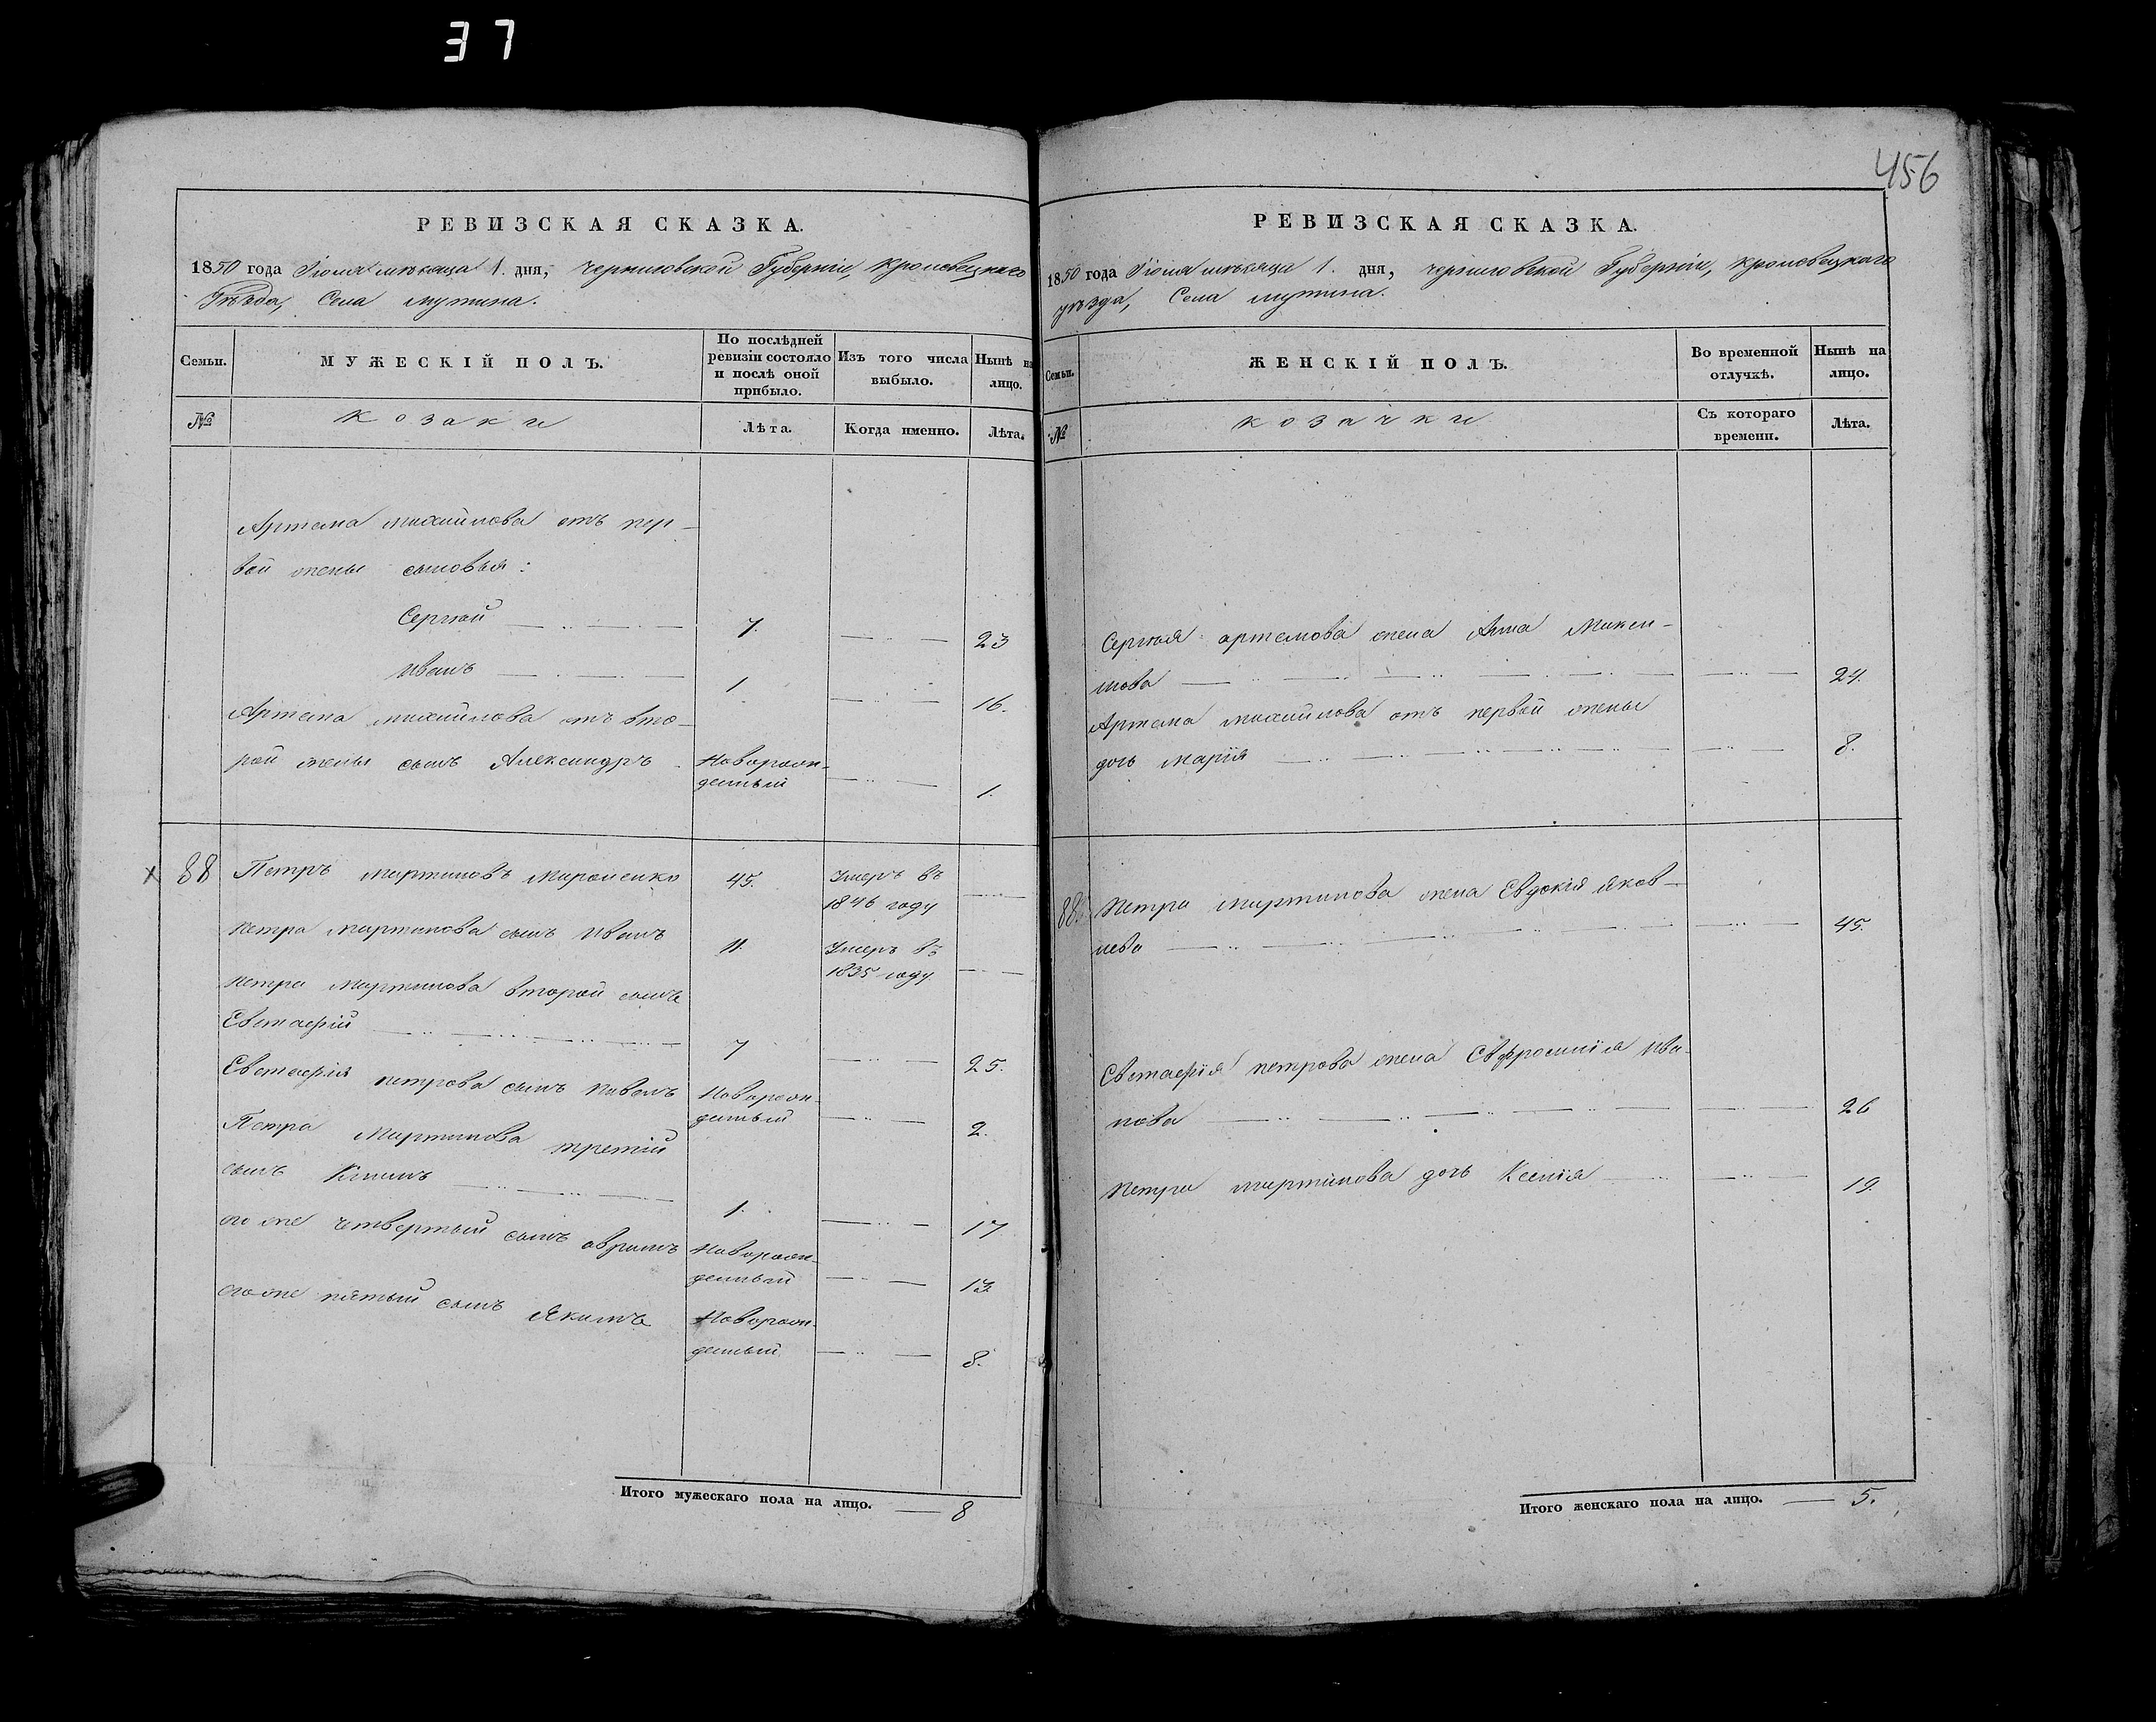 37
456
РЕВИЗСКАЯ СКАЗКА.
1850 года Іюля мѣсяца 1. дня, Черниговской Губерніи, Кролевецкаго
Уѣзда, Села Мутина.
Семьи.
МУЖЕСКІЙ ПОЛЪ.
По послѣдней ревизіи состояло и послѣ оной прибыло.
Изъ того числа выбыло.
Нынѣ на лицо.
№
Козаки
Лѣта.
Когда именно.
Лѣта.
Артема Михайлова отъ пер-
вой жены сыновья:
Сергѣй 7. 23
Иванъ 1 16.
Артема Михайлова отъ вто-
рой жены сынъ Александръ Новорож-
денный 1.
88 Петръ Мартиновъ Мироненко 45. Умеръ въ
1846 году
Петра Мартинова сынъ Иванъ 11. Умеръ въ
1835 году
Петра Мартинова второй сынъ
Евстафій 7 25.
Евстафія Петрова сынъ Павелъ Новорож-
денный 2.
Петра Мартинова третій
сынъ Климъ 1. 17
его же четвертый сынъ Аврамъ Новорож-
денный 13.
его же пятый сынъ Якимъ Новорож-
денный 8.
Итого мужескаго пола на лицо. 8
РЕВИЗСКАЯ СКАЗКА.
1850 года Іюля мѣсяца 1. дня, Черниговской Губерніи, Кролевецкаго
уѣзда, Села Мутина.
Семьи.
ЖЕНСКІЙ ПОЛЪ.
Во временной отлучкѣ.
Нынѣ на лицо.
№
Козачки
Съ котораго времени.
Лѣта.
Сергѣя Артемова жена Анна
24.
Артема Михайлова отъ первой жены
дочь Марія 8.
88 Петра Мартинова жена Евдокія Яков-
лева 45.
Евстафія Петрова жена Евфросинія Ива-
нова 26
Петра Мартинова дочь Ксенія 19.
Итого женскаго пола на лицо. 5.